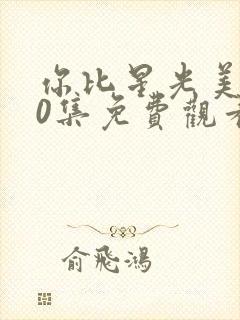 你比星光美
0集免費觀看
俞飛鴻